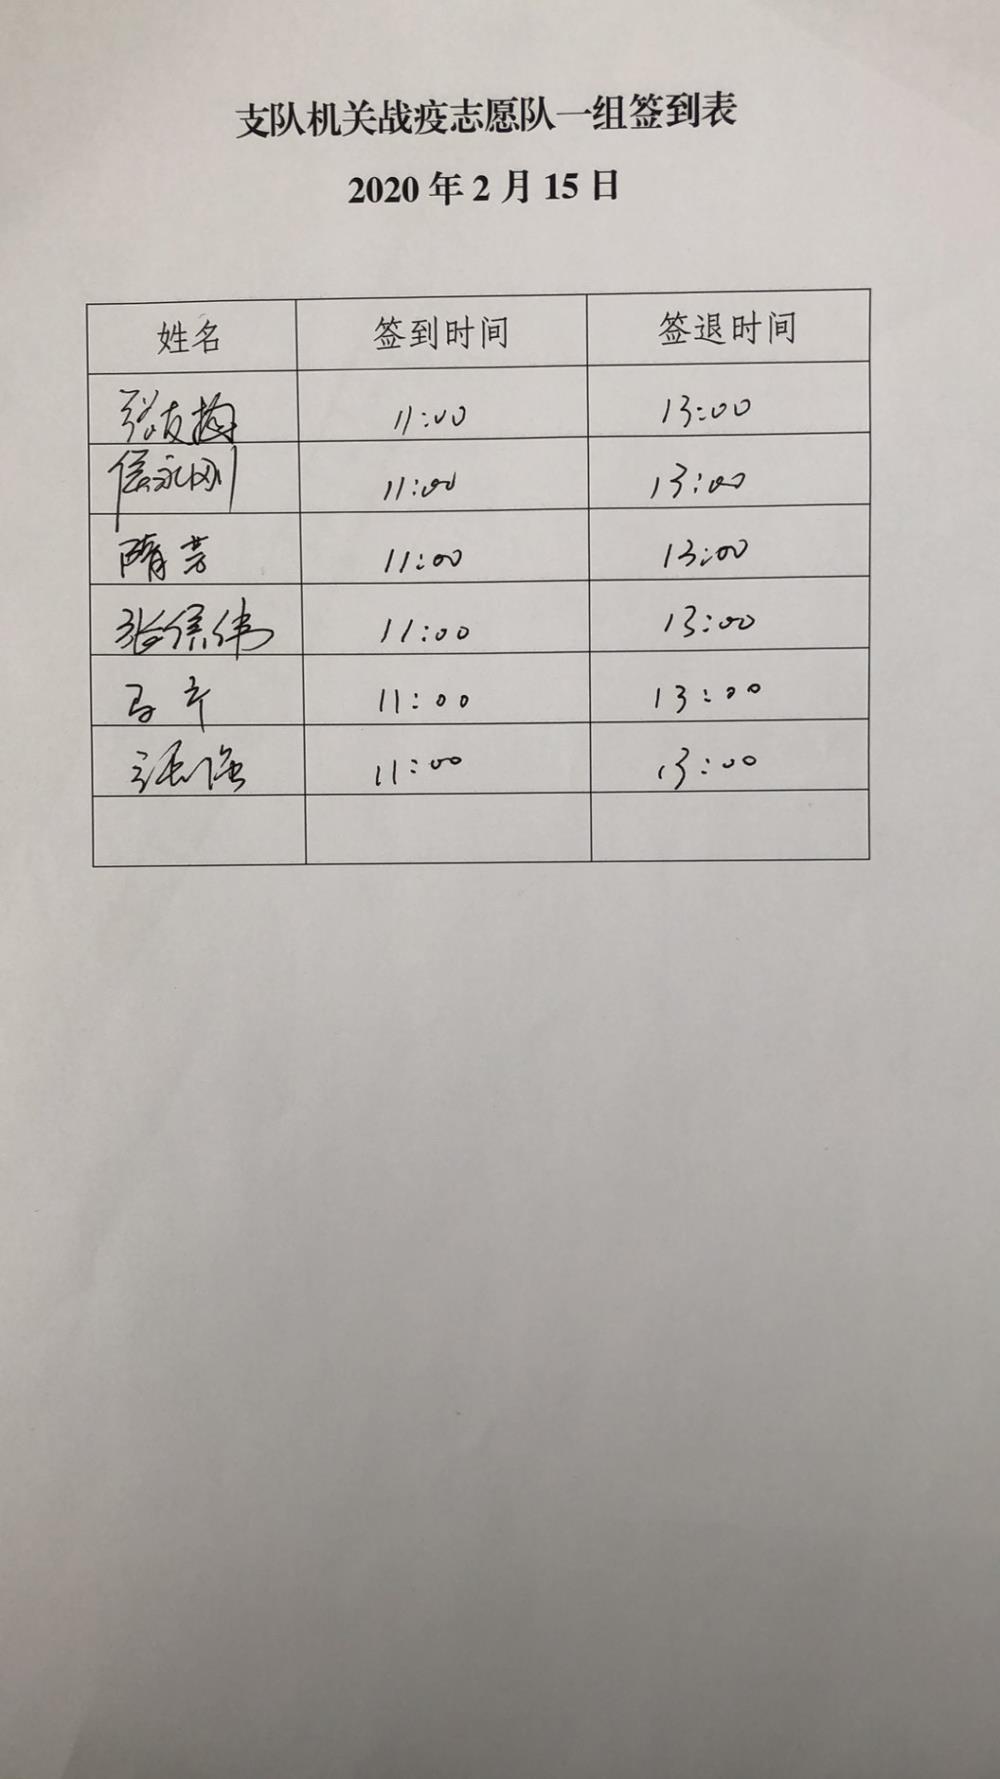 支队机关战疫志愿队一组签到表
2020 年 2 月 15 日
姓名 签到时间 签退时间
张友梅 11:00 13:00
信永刚 11:00 13:00
隋芳 11:00 13:00
张保伟 11:00 13:00
马 11:00 13:00
11:00 13:00